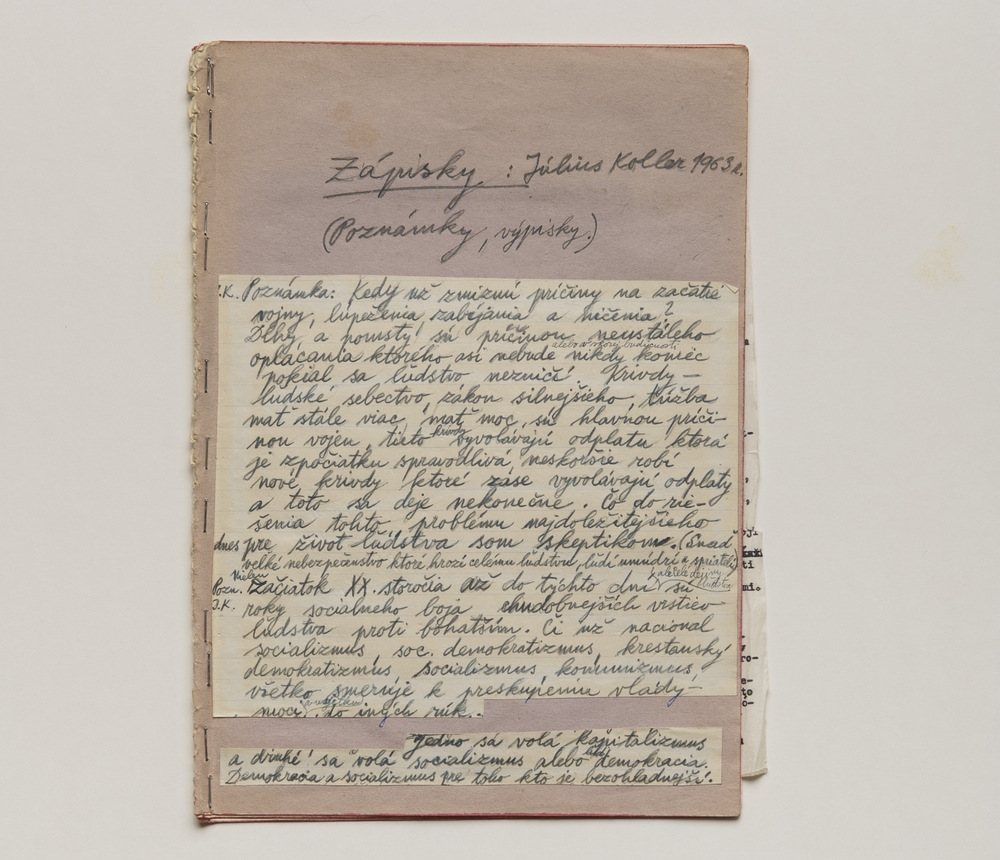 Zápisky : Július Koller 1963 r.
(Poznámky, výpisky.)
J.K. Poznámka: Kedy už zmiznú príčiny na začatie
vojny, lúpeženia, zabíjania a ničenia?
Dlhy a pomsty sú príčinou neustáleho
alebo v skorej budúcnosti
oplácania ktorého asi nebude nikdy koniec
pokiaľ sa ľudstvo nezničí. Krivdy –
ľudské sebectvo, zákon silnejšieho, túžba
mať stále viac, mať moc, sú hlavnou príči-
nou vojen, tieto krivdy vyvolávajú odplatu ktorá
je zpočiatku spravodlivá, neskoršie robí
nové krivdy ktoré záse vyvolávajú odplaty
a toto sa deje nekonečne. Čo do rie-
šenia tohto problému najdoležitejšieho
dnes pre život ľudstva som skeptikom. (Snad
veľké nebezpečenstvo ktoré hrozí celému ľudstvu, ľudí umúdri a spriatelí)
Pozn. J.K. Nielen začiatok XX. storočia až do týchto dní sú
ale celé dejiny ľudstva
roky socialneho boja chudobnejších vrstiev
ľudstva proti bohatším. Či už nacional
socializmus, soc. demokratizmus, kresťanský
demokratizmus, socializmus, komunizmus,
všetko smeruje k preskupeniu vlády –
moci do iných rúk.
Jedno sá volá kapitalizmus
a druhé sa volá socializmus alebo demokracia.
Demokracia a socializmus pre toho kto je bezohladnejší!